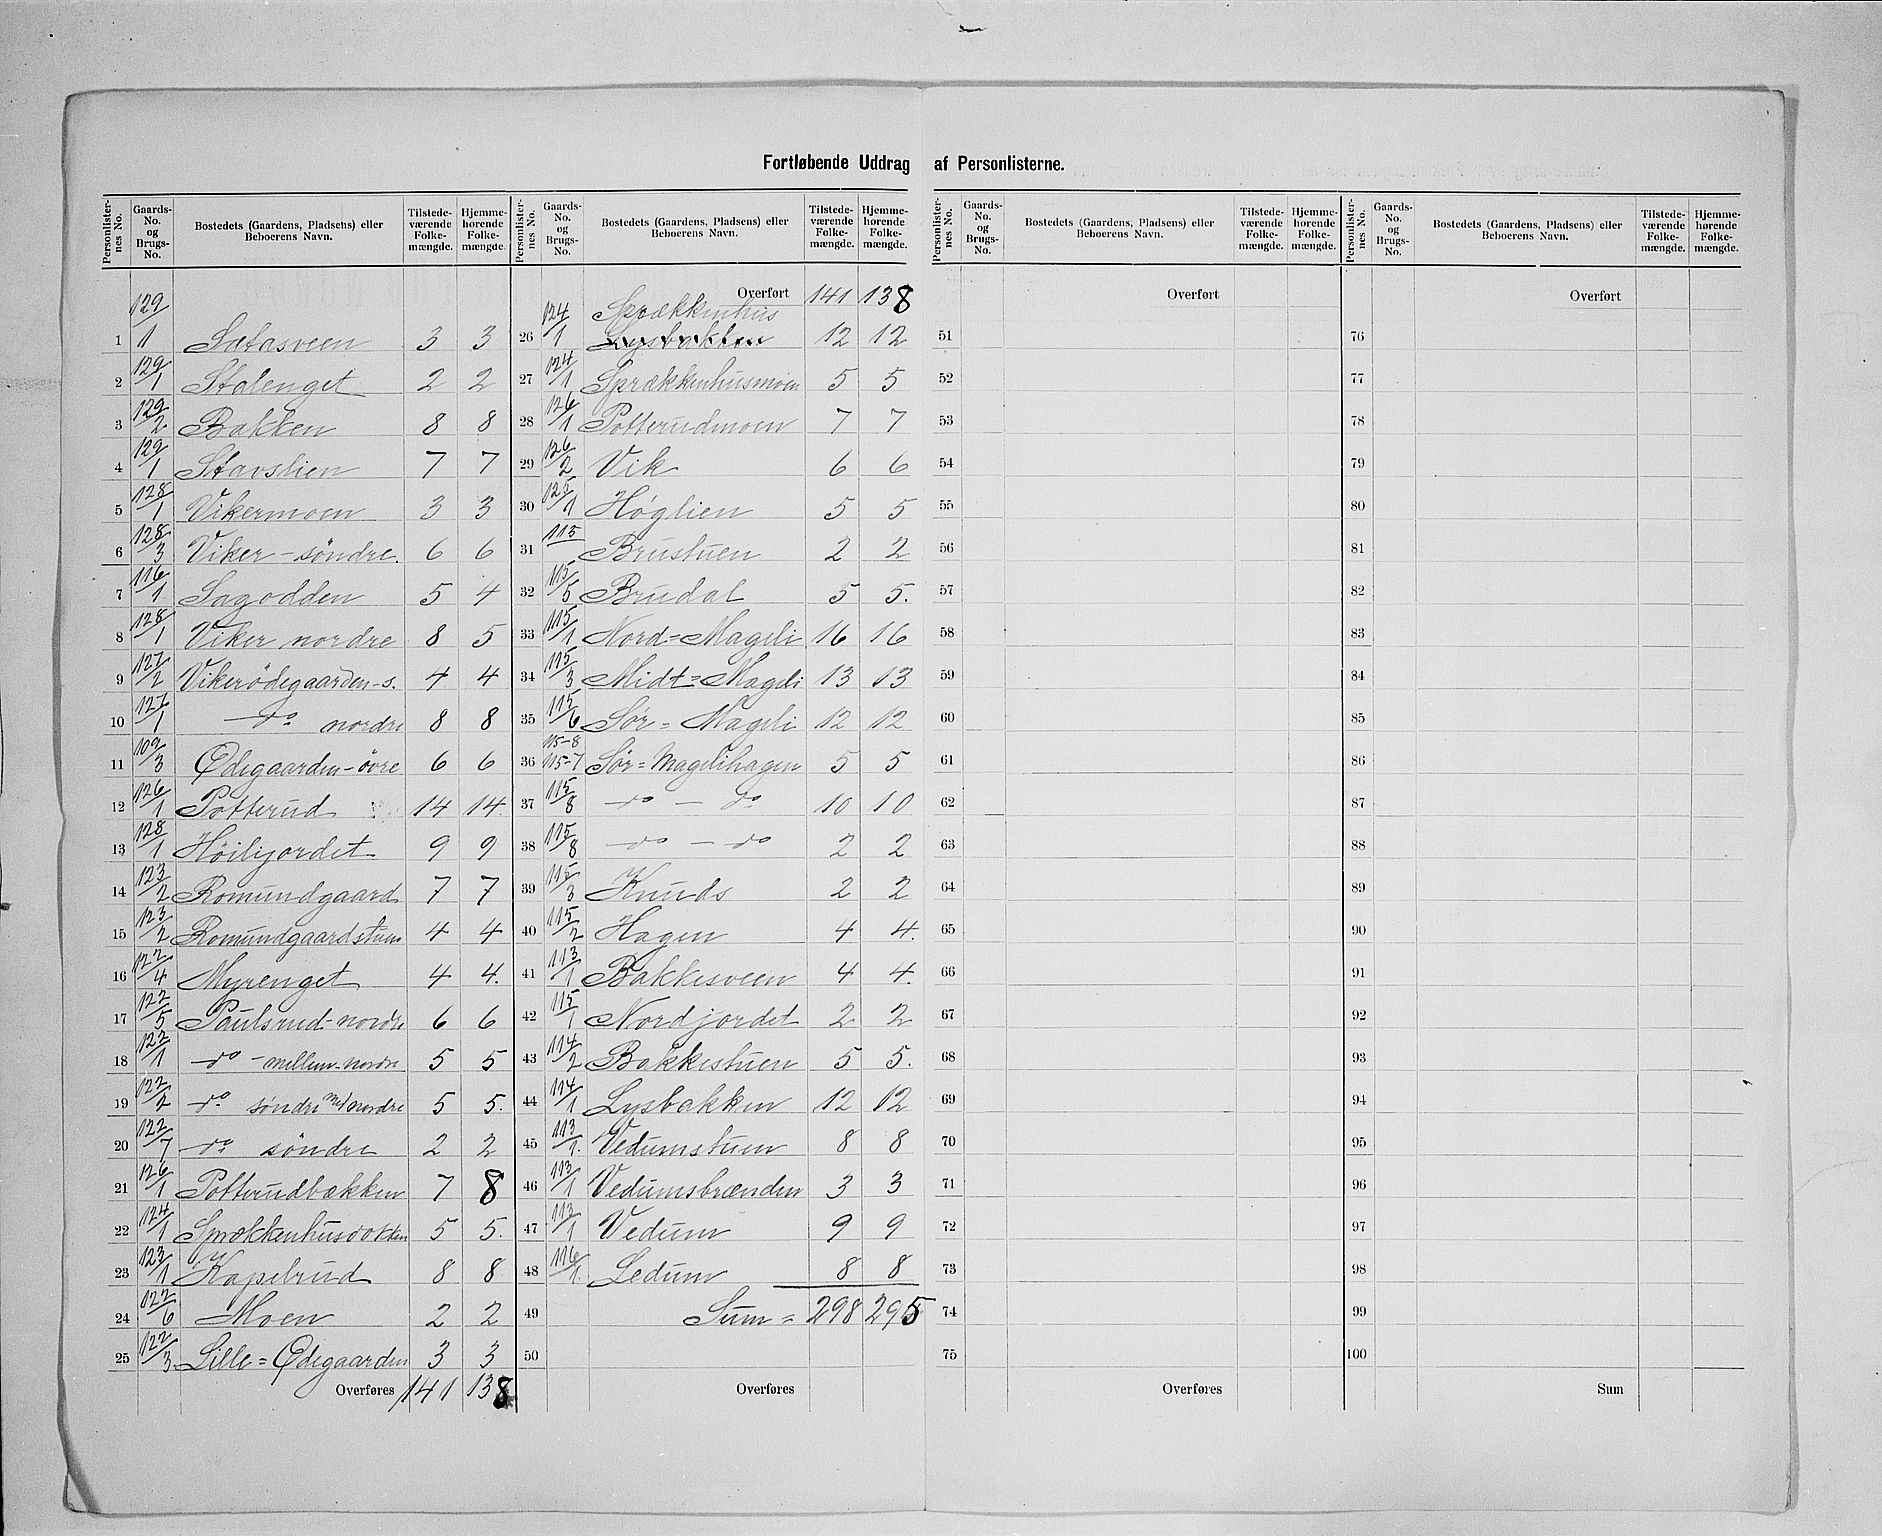 Fortløbende Uddrag af Personlisterne.
Personlister-nes No. | Gaards-No. og Brugs-No. | Bostedets (Gaardens, Pladsens) eller Beboerens Navn. | Tilstede-værende Folke-mængde. | Hjemme-hørende Folke-mængde.
1 129/1 Sætasveen 3 3
2 129/1 Stalenget 2 2
3 129/2 Bakken 8 8
4 129/1 Stavslien 7 7
5 128/1 Vikermoen 3 3
6 128/3 Viker-søndre. 6 6
7 116/1 Sagodden 5 4
8 128/1 Viker nordre 8 5
9 127/2 Vikerødegaarden-s. 4 4
10 127/1 do nordre 8 8
11 109/3 Ødegaarden-övre 6 6
12 126/1 Potterud 14 14.
13 128/1 Høilijordet 9 9
14 123/2 Romundgaard 7 7
15 123/2 Romundgaardstuen 4 4
16 122/4 Myrenget 4 4.
17 122/5 Paulsrud-nordre 6 6
18 122/1 do -mellem-nordre 5 5
19 122/2 do søndre med nordre 5 5.
20 122/7 do søndre 2 2
21 126/1 Potterudbakken 7 8
22 124/1 Sprækkenhusbakken 5 5.
23 123/1 Kapelrud 8 8
24 122/6 Moen 2 2
25 122/3. Lille=Ødegaarden 3 3
Overføres 141 138
Personlister-nes No. | Gaards-No. og Brugs-No. | Bostedets (Gaardens, Pladsens) eller Beboerens Navn. | Tilstede-værende Folke-mængde. | Hjemme-hørende Folke-mængde.
Overført 141 138
Sprækkenhus
26 124/1 Lysbakken 12 12
27 124/1 Sprækkenhusmoen 5 5
28 126/1 Potterudmoen 7 7
29 126/2 Vik 6 6
30 125/1 Høglien 5 5
31 115 Brustuen 2 2
32 115/5 Brudal 5 5.
33 115/1 Nord=Mageli 16 16
34 115/3 Midt=Mageli 13 13
35 115/6 Sør=Mageli 12 12
115-8
36 115-7 Sør=Magelihagen 5 5
37 115/8 do - do 10 10
38 115/8 do - do 2 2
39 115/3 Knuds 2 2
40 115/2 Hagen 4 4.
41 113/1 Bakkesveen 4 4.
42 115/1 Nordjordet 2 2
43 114/2 Bakkestuen 5 5.
44 114/1 Lysbakken 12 12
45 113/1. Vedumstuen 8 8
46 113/1 Vedumsbrænden 3 3
47 113/1 Vedum 9 9
48 116/1. Ledum 8 8
49 Sum = 298 295
50
Overføres
Personlister-nes No. | Gaards-No. og Brugs-No. | Bostedets (Gaardens, Pladsens) eller Beboerens Navn. | Tilstede-værende Folke-mængde. | Hjemme-hørende Folke-mængde.
Overført
51
52
53
54
55
56
57
58
59
60
61
62
63
64
65
66
67
68
69
70
71
72
73
74
75
Overføres
Personlister-nes No. | Gaards-No. og Brugs-No. | Bostedets (Gaardens, Pladsens) eller Beboerens Navn. | Tilstede-værende Folke-mængde. | Hjemme-hørende Folke-mængde.
Overført
76
77
78
79
80
81
82
83
84
85
86
87
88
89
90
91
92
93
94
95
96
97
98
99
100
Sum